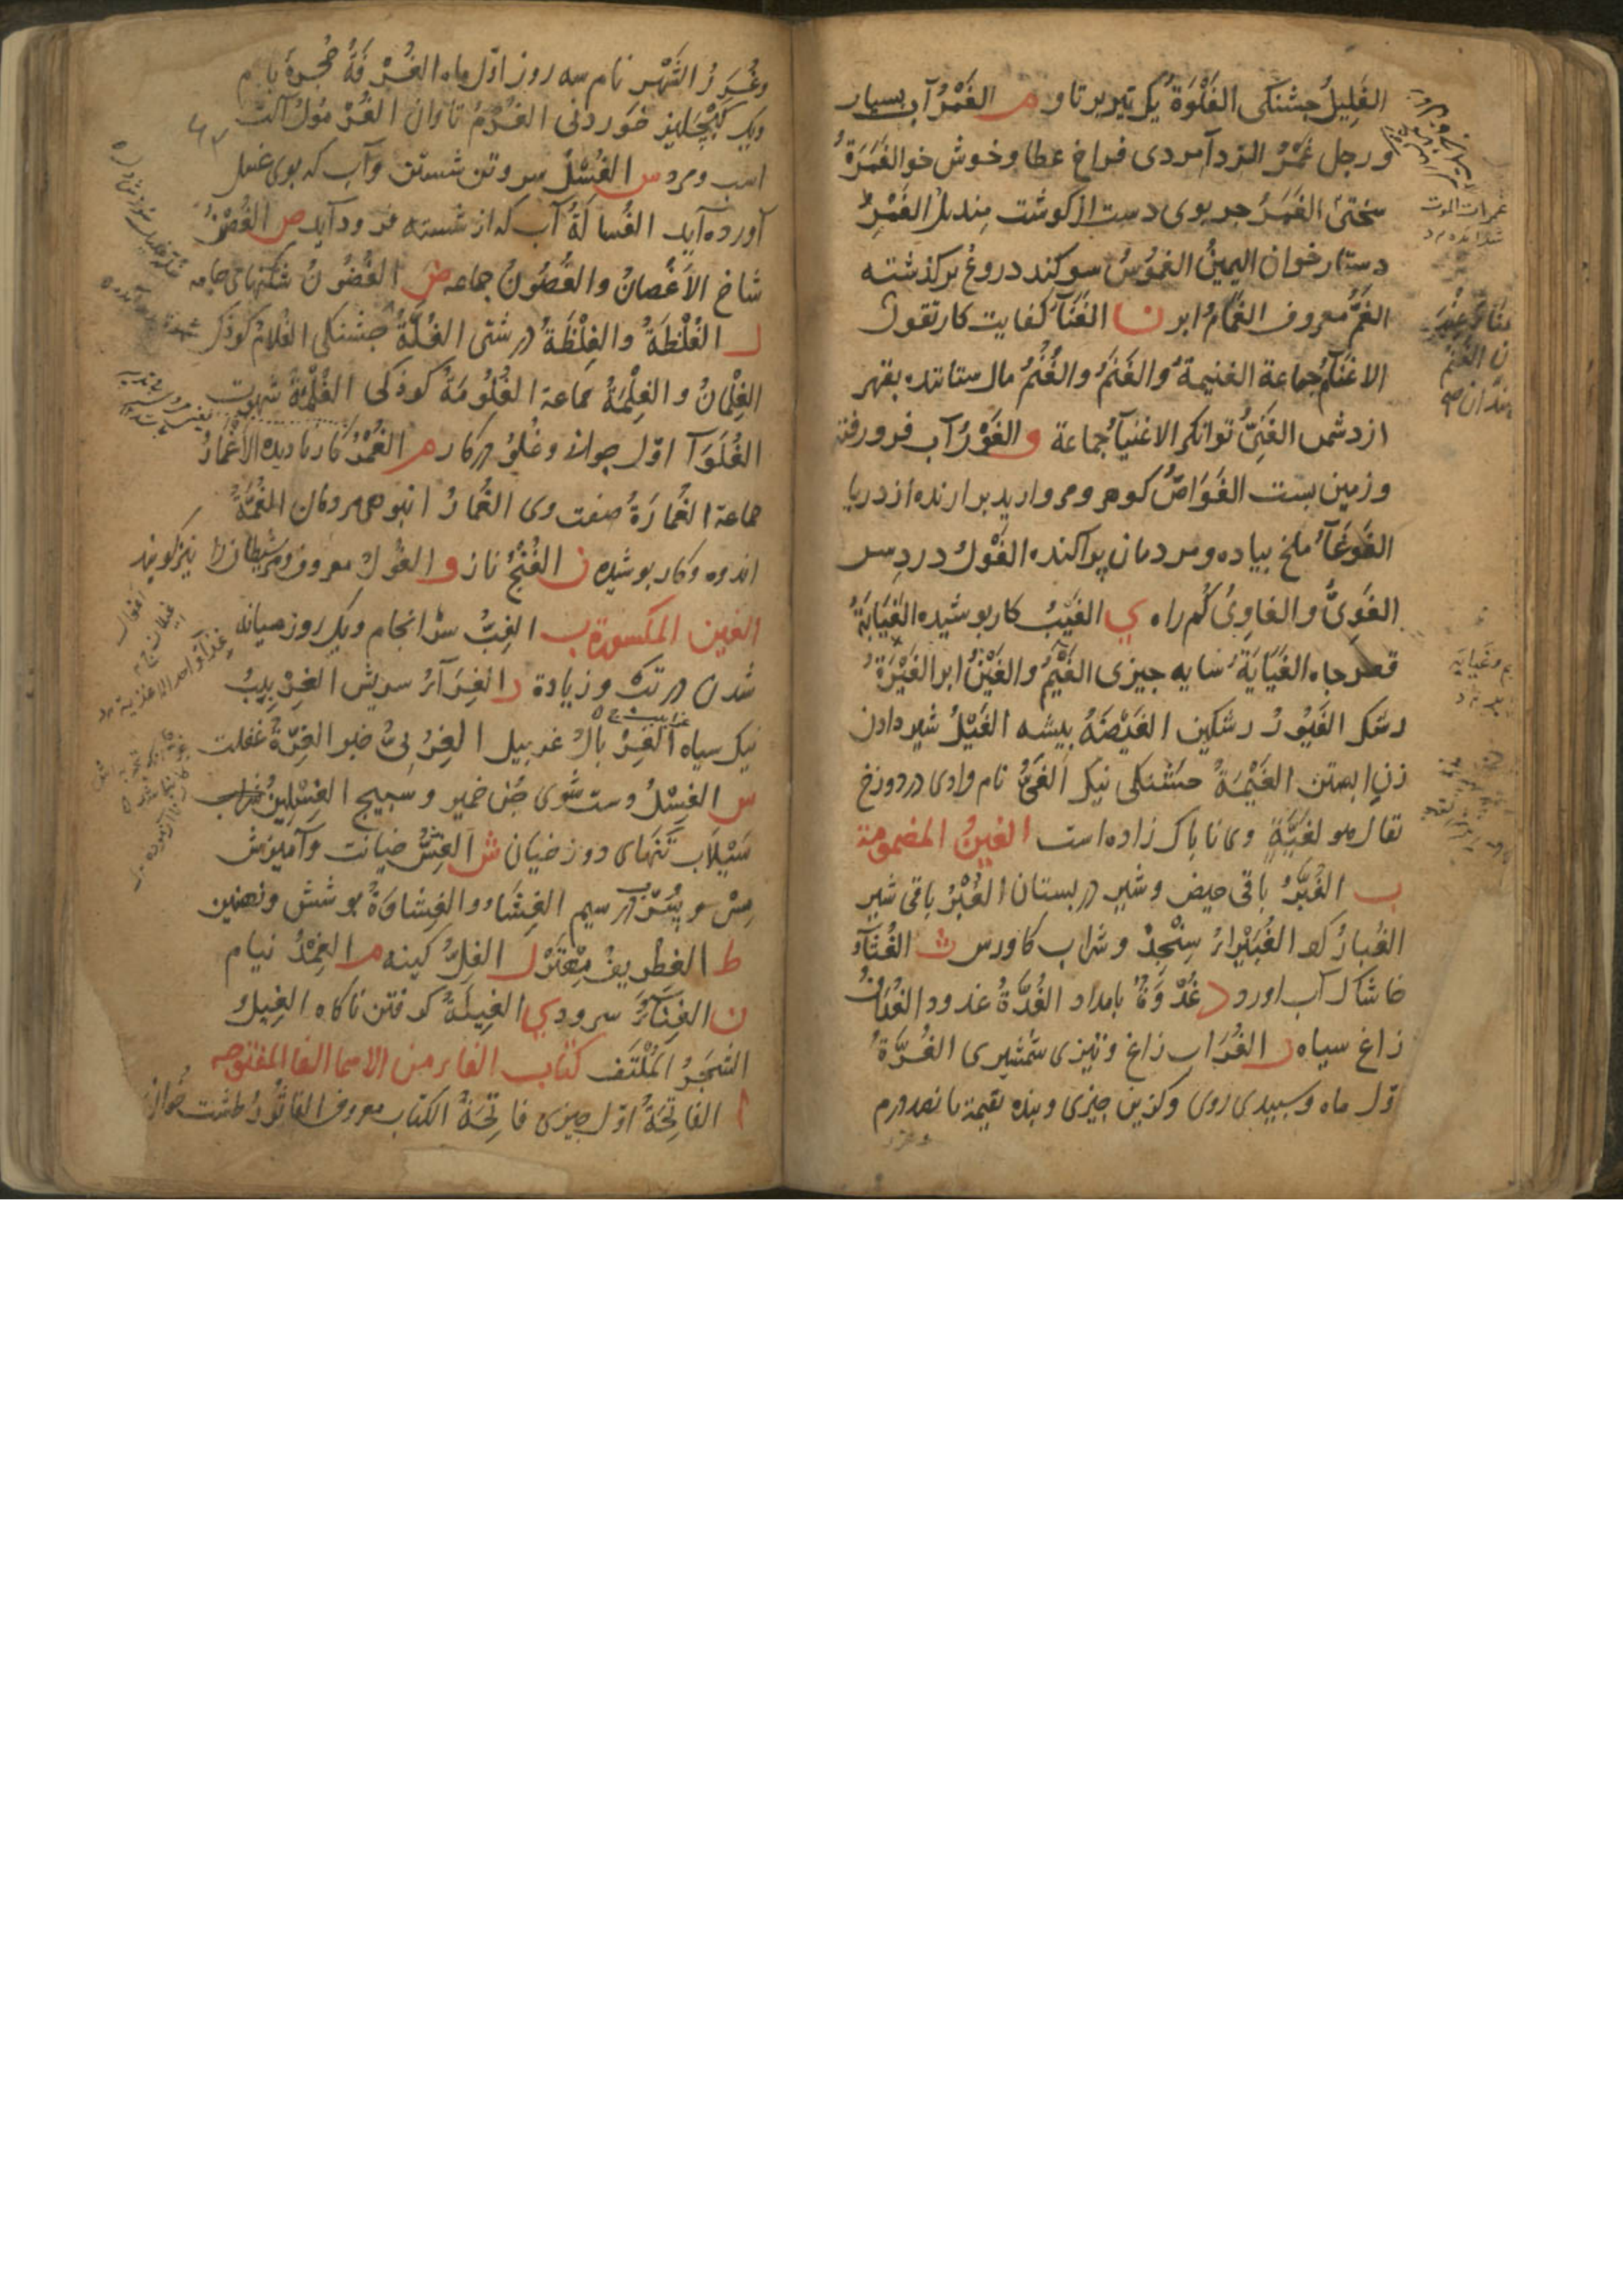 الغَلِيلُ جشنكى الغَلْوَةُ يك تير پرتاو م الغَمْرُ آب بسيار
ورجل غَمْرُ الردآ مردى فراخ عطا وخوش خو الغَمْرَةُ
سختى الغَمَرُ چربوى دست از كوشت منديل الغَمَرِ
دستار خوان اليمينُ الغموُسُ سوكند دروغ بر كذشته
الغَمُّ معروف الغَمَامُ ابر ن الغَنَآءُ كفايت كار تقول
الاغنَامُ جماعة الغنيمةُ والغَنَمُ والغُنْمُ مال ستانده بقهر
از دشمن الغَنِىُّ توانكر الاغنيآءُ جماعة و الغَوْرُ آب فرو رفته
وزمين پست الغَوَّاصُ كوهر ومرواريد برارنده از دريا
الغَوغَآءُ ملخ پياده ومردمان پراكنده الغَوْلُ دردسر
الغَوِىُّ والغاوِىُ كُم راه ي الغَيْبُ كار پوشيده الغَيَابَةُ
قعر چاه الغَيَايَةُ سايه چيزى الغَيْمُ والغَيْنُ ابر الغَيْرَةُ
رشك الغَيُورُ رشكين الغَيْضَةُ بيشه الغَيْلُ شير دادن
زنِ ابستن الغَيْمَةُ تشنكى نيك الغَىُّ نام وادى در دوزخ
تقال هو لغَيَّةٍ وى ناپاك زاده است الغينُ المضمومة
ب الغُبَّرُ باقى حيض وشير در پستان الغُبْرُ باقى شير
الغُبارُ كرد الغُبَيْرآءُ سِنْجِدْ وشراب كاورس ث الغُثَآءُ
خاشاك آب اورد د غُدْوَةً بامداد الغُدَّةُ غدود الغُدَافُ
زاغ سياه ر الغُرَابُ زاغ وتيزى شمشيرى الغُرَّةُ
اوّل ماه وسپيدى روى وكزين چيزى وبنده بقيمة پانصد درم
وغُرَرُ الشَّهْرِ نام سه روز اوّل ماه الغُرْفَةُ حُجرهٔ بام
ويك كَپْچليز خوردنى الغُرْمُ تاوان الغُرْمُولُ آلت
اسب ومرد س الغُسْلُ سر وتن شستن وآب كه بوى غسل
آورده آيد الغُسالَةُ آب كه از شسته فرود آيد ص الغُصْنُ
شاخ الاَغْصانُ والغُصُونُ جماعه ض الغُضُونُ شكنهاى جامه
ل الغُلْظَةُ والغِلْظَةُ درشتى الغُلَّةُ تشنكى الغُلَامُ كوذَك
الغِلْمَانُ والغِلْمَةُ جماعة الغُلُومَةُ كوذَكى الغُلْمَةُ شهوت
الغُلَوَآءُ اوّل جوانى وغُلُوّ در كار م الغُمْرُ كار ناديده الاَغْمَارُ
جماعة الغُمَارَةُ صفت وى الغُمَارُ انبوهى مردمان الغُمَّةُ
اندوه وكار پوشيده ن الغُنْجُ ناز و الغُولُ معروف ومر شيطان را نيز كويند
الغين المكسورة ب الغِبُّ سرانجام ويك روز ميانه
شدن در تب وزيادة ر الغِرَآءُ سريش الغِرْبِيبُ
نيك سياه الغِرْبَالُ غربيل الغِرَّةُ غفلت
س الغِسْلُ دست شوى چُن خمير وسبيج الغِسْلِينُ
سَيْلاَب تنهاى دوزخيان ش الغِشُّ خيانت وآميزشِ
مِس وسُرْب در سيم الغِشَاءُ والغِشاوَةُ پوشش ونهنبن
ط الغِطْرِيفُ مِهْتَرْ ل الغِلُّ كينه م الغِمْدُ نيام
ن الغِنَآءُ سرود ي الغِيلَةُ كرفتن ناكاه الغِيلُ
الشَجَرُ المُلْتَفُّ كتاب الفاء من الاسما الفا المفتوحه
ا الفاتِحَةُ اوّل چيزى فاتِحَةُ الكتاب معروف الفاثُورُ طشت خوان